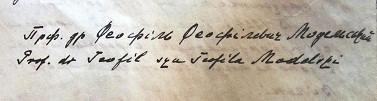 Проф. др Феофіль Феофілевич Модельскій
Prof. dr Teofil syn Teofila Modelski